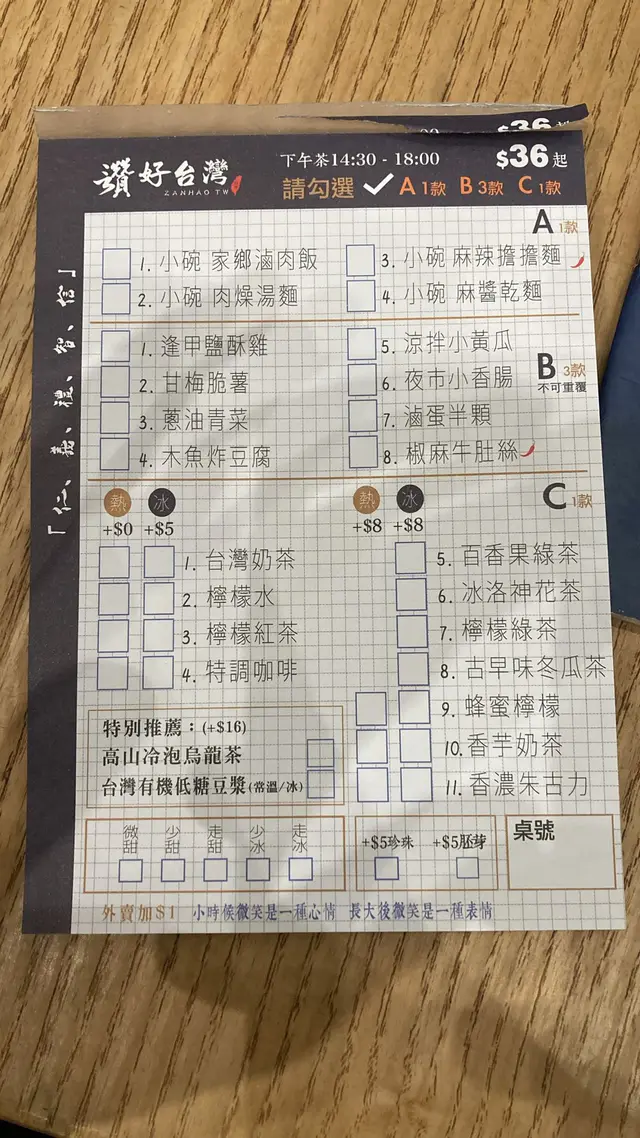 $36
讚好台灣
ZANHAO TW
下午茶14:30 - 18:00
$36起
請勾選 ✓ A 1款 B 3款 C 1款
「仁、義、禮、智、信」
A 1款
1. 小碗 家鄉滷肉飯
2. 小碗 肉燥湯麵
3. 小碗 麻辣擔擔麵
4. 小碗 麻醬乾麵
B 3款
不可重覆
1. 逢甲鹽酥雞
2. 甘梅脆薯
3. 蔥油青菜
4. 木魚炸豆腐
5. 涼拌小黃瓜
6. 夜市小香腸
7. 滷蛋半顆
8. 椒麻牛肚絲
C 1款
熱 冰
+$0 +$5
1. 台灣奶茶
2. 檸檬水
3. 檸檬紅茶
4. 特調咖啡
熱 冰
+$8 +$8
5. 百香果綠茶
6. 冰洛神花茶
7. 檸檬綠茶
8. 古早味冬瓜茶
9. 蜂蜜檸檬
10. 香芋奶茶
11. 香濃朱古力
特別推薦：(+$16)
高山冷泡烏龍茶
台灣有機低糖豆漿(常溫/冰)
微甜 少甜 走甜 少冰 走冰
+$5珍珠 +$5胚芽
桌號
外賣加$1 小時候微笑是一種心情 長大後微笑是一種表情